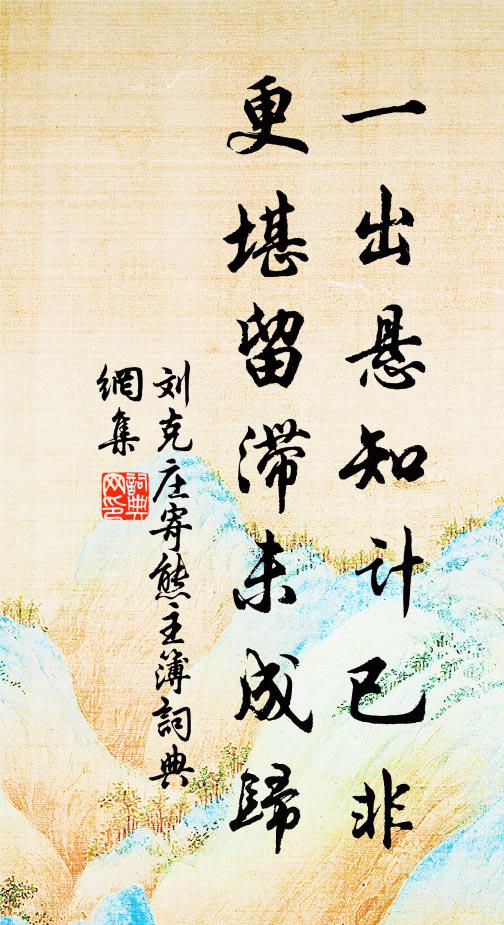 一出悬知计已非
更堪留滞未成歸
刘克庄寄熊主簿詞典
網集
詞典
网印